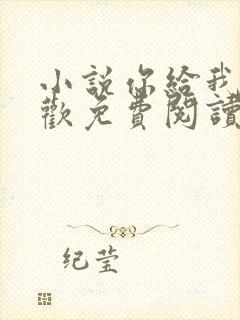 小説你給我
歡免費閱讀
纪莹